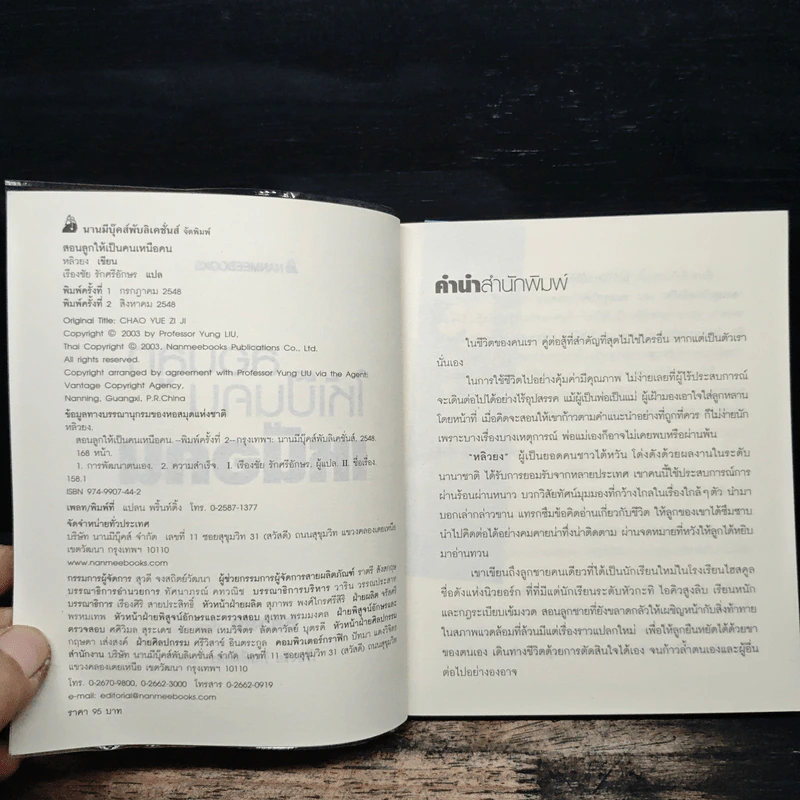 นานมีบุ๊คส์พับลิเคชั่นส์ จัดพิมพ์
สอนลูกให้เป็นคนเหนือคน
หลิวยง เขียน
เรืองชัย รักศรีอักษร แปล
พิมพ์ครั้งที่ 1 กรกฎาคม 2548
พิมพ์ครั้งที่ 2 สิงหาคม 2548
Original Title: CHAO YUE ZI JI
Copyright © 2003 by Professor Yung LIU.
Thai Copyright © 2003, Nanmeebooks Publications Co., Ltd.
All rights reserved.
Copyright arranged by agreement with Professor Yung LIU via the Agent:
Vantage Copyright Agency.
Nanning, Guangxi, P.R.China
ข้อมูลทางบรรณานุกรมของหอสมุดแห่งชาติ
หลิวยง.
สอนลูกให้เป็นคนเหนือคน.--พิมพ์ครั้งที่ 2--กรุงเทพฯ: นานมีบุ๊คส์พับลิเคชั่นส์, 2548.
168 หน้า.
1. การพัฒนาตนเอง. 2. ความสำเร็จ. I. เรืองชัย รักศรีอักษร, ผู้แปล. II. ชื่อเรื่อง.
158.1
ISBN 974-9907-44-2
เพลท/พิมพ์ที่ แปลน พริ้นท์ติ้ง โทร. 0-2587-1377
จัดจำหน่ายทั่วประเทศ
บริษัท นานมีบุ๊คส์ จำกัด เลขที่ 11 ซอยสุขุมวิท 31 (สวัสดี) ถนนสุขุมวิท แขวงคลองเตยเหนือ
เขตวัฒนา กรุงเทพฯ 10110
www.nanmeebooks.com
กรรมการผู้จัดการ สุวดี จงสถิตย์วัฒนา ผู้ช่วยกรรมการผู้จัดการสายผลิตภัณฑ์ ราตรี
บรรณาธิการอำนวยการ ทัศนาภรณ์ คทวณิช บรรณาธิการบริหาร วาริน
บรรณาธิการ เรืองศิริ สายประสิทธิ์ หัวหน้าฝ่ายผลิต สุภาพร พงศ์ไกรศรีสิริ ฝ่ายผลิต
พรหมเทพ หัวหน้าฝ่ายพิสูจน์อักษรและตรวจสอบ สุเทพ พรมมงคล ฝ่ายพิสูจน์อักษรและ
ตรวจสอบ ศศิวิมล สุระเดช ชัยยศพล เหมวิจิตร ลัดดาวัลย์ บุตรดี หัวหน้าฝ่ายศิลปกรรม
กฤษดา เส่งสงค์ ฝ่ายศิลปกรรม ศรีวิสาข์ อินตระกูล คอมพิวเตอร์กราฟิก
สำนักงาน บริษัท นานมีบุ๊คส์พับลิเคชั่นส์ จำกัด เลขที่ 11 ซอยสุขุมวิท 31 (สวัสดี) ถนนสุขุมวิท
แขวงคลองเตยเหนือ เขตวัฒนา กรุงเทพฯ 10110
โทร. 0-2670-9800, 0-2662-3000 โทรสาร 0-2662-0919
e-mail: editorial@nanmeebooks.com
ราคา 95 บาท
คำนำสำนักพิมพ์
ในชีวิตของคนเรา คู่ต่อสู้ที่สำคัญที่สุดไม่ใช่ใครอื่น หากแต่เป็นตัวเรา
นั่นเอง
ในการใช้ชีวิตไปอย่างคุ้มค่ามีคุณภาพ ไม่ง่ายเลยที่ผู้ไร้ประสบการณ์
จะเดินต่อไปได้อย่างไร้อุปสรรค แม้ผู้เป็นพ่อเป็นแม่ ผู้เฝ้ามองเอาใจใส่ลูกหลาน
โดยหน้าที่ เมื่อคิดจะสอนให้เขาก้าวตามคำแนะนำอย่างถูกที่ควร ก็ไม่ง่ายนัก
เพราะบางเรื่องบางเหตุการณ์ พ่อแม่เองก็อาจไม่เคยพบหรือผ่านพ้น
"หลิวยง" ผู้เป็นยอดคนชาวไต้หวัน โด่งดังด้วยผลงานในระดับ
นานาชาติ ได้รับการยอมรับจากหลายประเทศ เขาคนนี้ใช้ประสบการณ์การ
ผ่านร้อนผ่านหนาว บวกวิสัยทัศน์มุมมองที่กว้างไกลในเรื่องใกล้ๆตัว นำมา
บอกเล่ากล่าวขาน แทรกซึมข้อคิดอ่านเกี่ยวกับชีวิต ให้ลูกของเขาได้ซึมซาบ
นำไปคิดต่อได้อย่างคมคายน่าทึ่งน่าติดตาม ผ่านจดหมายที่หวังให้ลูกได้หยิบ
มาอ่านทวน
เขาเขียนถึงลูกชายคนเดียวที่ได้เป็นนักเรียนใหม่ในโรงเรียนไฮสกูล
ชื่อดังแห่งนิวยอร์ก ที่ที่มีแต่นักเรียนระดับหัวกะทิ ไอคิวสูงลิบ เรียนหนัก
และกฎระเบียบเข้มงวด สอนลูกชายที่ยังขลาดกลัวให้เผชิญหน้ากับสิ่งท้าทาย
ในสภาพแวดล้อมที่ล้วนมีแต่เรื่องราวแปลกใหม่ เพื่อให้ลูกยืนหยัดได้ด้วยขา
ของตนเอง เดินทางชีวิตด้วยการตัดสินใจได้เอง จนก้าวล้ำตนเองและผู้อื่น
ต่อไปอย่างองอาจ